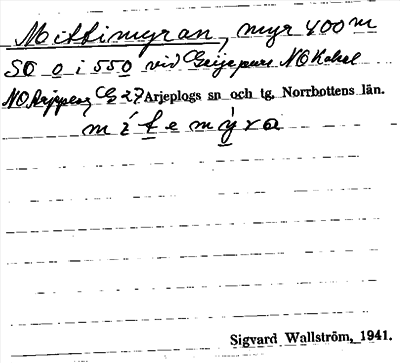 Mittimyran, myr 400 m
SO 0 i 550 vid NO Kakel
NO Arjeplogs sn och tg, Norrbottens län.
mítemýra
Sigvard Wallström, 1941.